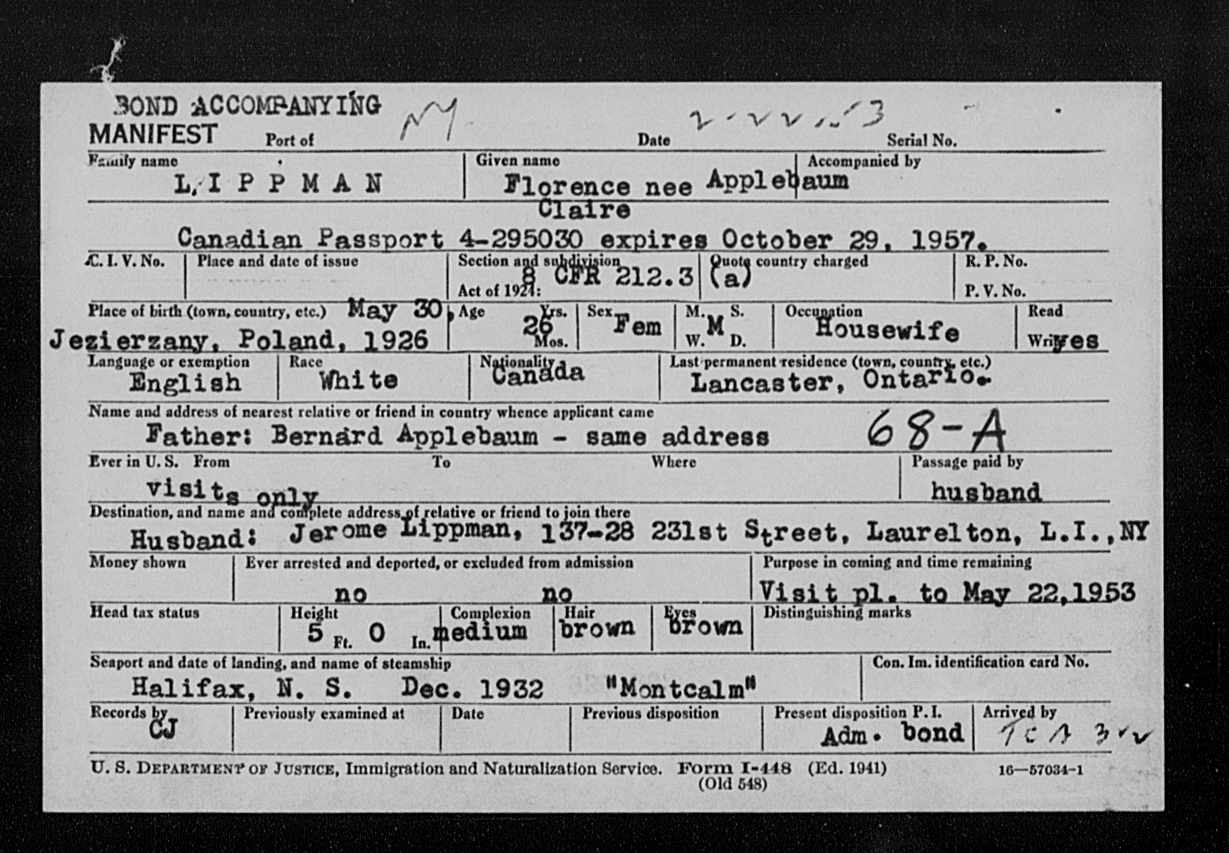 BOND ACCOMPANYING
MANIFEST Port of NY. Date 2-22-53 Serial No.
Family name Given name Accompanied by
LIPPMAN Florence nee Applebaum
Claire
Canadian Passport 4-295030 expires October 29, 1957.
C. I. V. No. Place and date of issue Section and subdivision Quota country charged R. P. No.
8 CFR 212.3 (a)
Act of 1924: P. V. No.
Place of birth (town, country, etc.) May 30, Age Yrs. Sex M. S. Occupation Read
Jezierzany, Poland, 1926 26 Mos. Fem W. M D. Housewife Write yes
Language or exemption Race Nationality Last permanent residence (town, country, etc.)
English White Canada Lancaster, Ontario.
Name and address of nearest relative or friend in country whence applicant came
Father: Bernard Applebaum - same address 68-A
Ever in U. S. From To Where Passage paid by
visits only husband
Destination, and name and complete address of relative or friend to join there
Husband: Jerome Lippman, 137-28 231st Street, Laurelton, L.I.,NY
Money shown Ever arrested and deported, or excluded from admission Purpose in coming and time remaining
no no Visit pl. to May 22,1953
Head tax status Height Complexion Hair Eyes Distinguishing marks
5 Ft. 0 In. medium brown brown
Seaport and date of landing, and name of steamship Con. Im. identification card No.
Halifax, N. S. Dec. 1932 "Montcalm"
Records by Previously examined at Date Previous disposition Present disposition P. I. Arrived by
CJ Adm. bond TCA
U. S. DEPARTMENT OF JUSTICE, Immigration and Naturalization Service. Form I-448 (Ed. 1941) 16—57034-1
(Old 548)